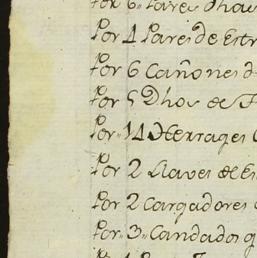 Por 6 Pares dhas
Por 4 Pares de Estr
Por 6 Cañones d
Por 5 Dhos de F
Por 14 Herrages
Por 2 Llaves de Es
Por 2 Cargadores
Por 3 Candados q